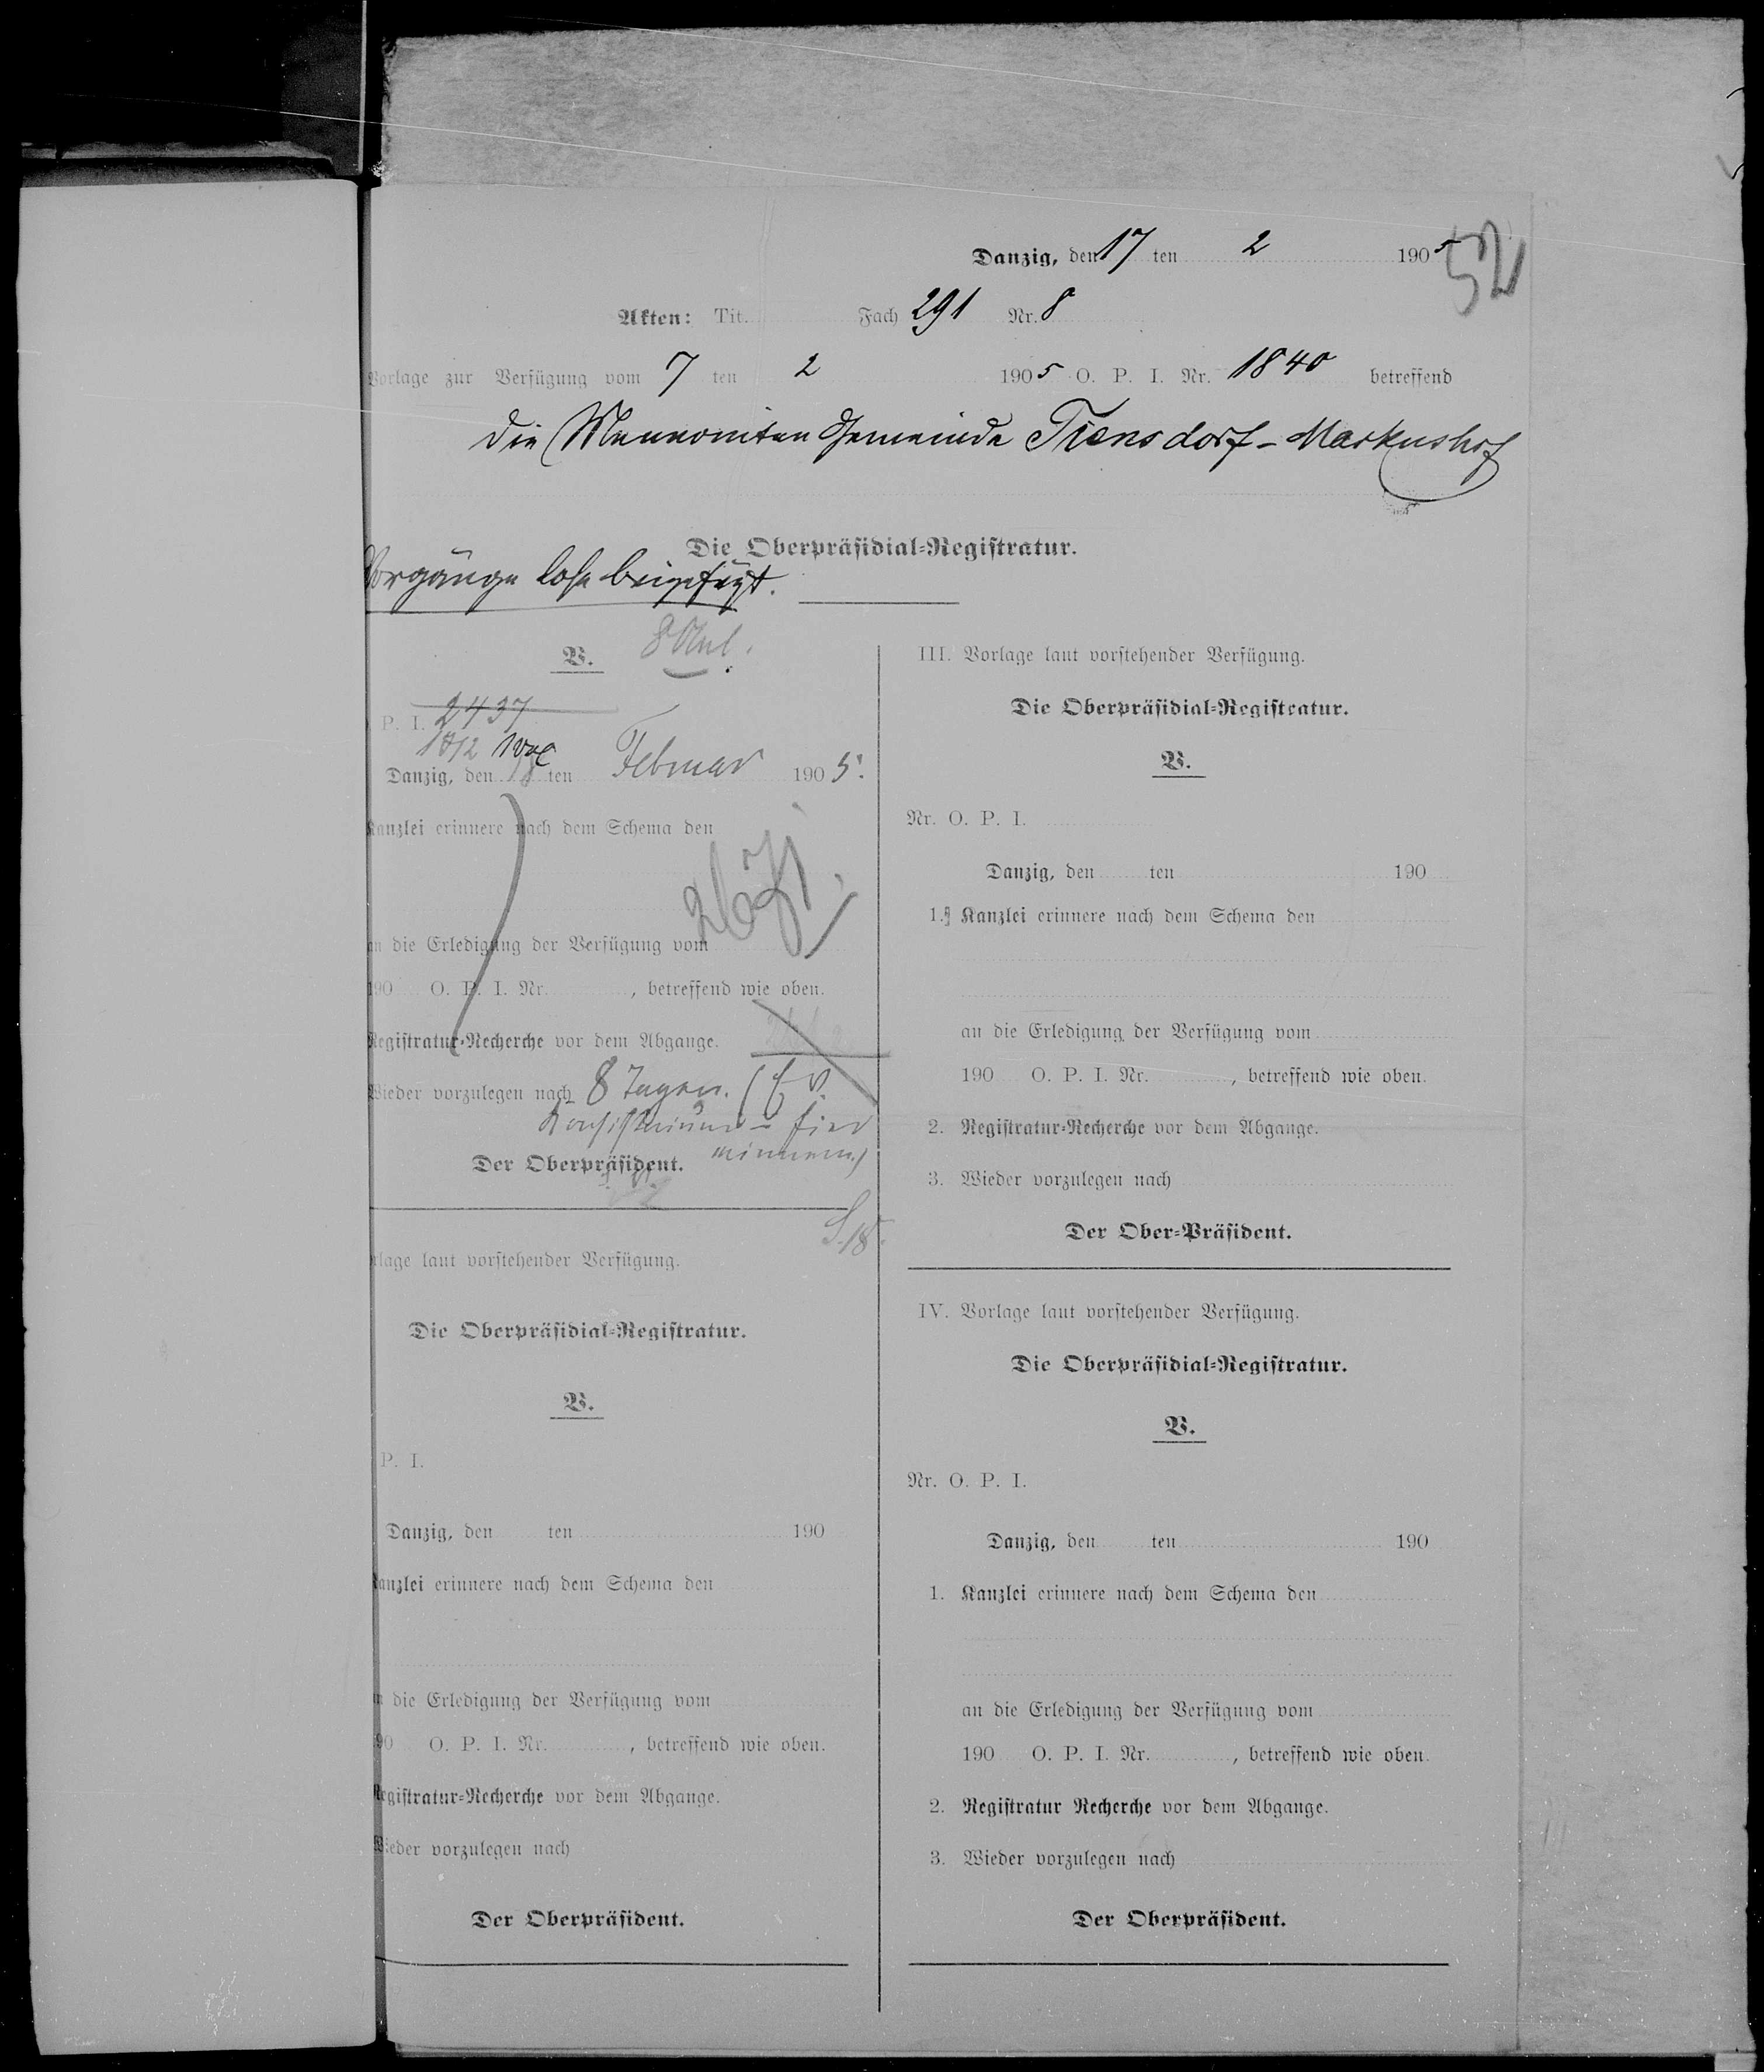 Danzig, den 17 ten 2 1905
52
Akten: Tit. Fach 291 Nr. 8
Vorlage zur Verfügung vom 7 ten 2 1905 O. P. I. Nr. 1840 betreffend
die Mennoniten Gemeinde Thiensdorf-Markushof
Die Oberpräsidial-Registratur.
Vorgänge lose beigefügt.
V. 8 Anl.
P. I. 2437
Danzig, den 18 ten Februar 1905.
Kanzlei erinnere nach dem Schema den
an die Erledigung der Verfügung vom
190 O. P. I. Nr. , betreffend wie oben.
Registratur-Recherche vor dem Abgange.
Wieder vorzulegen nach 8 Tagen. (Ev.
Konsistorium - hier
erinnern.)
Der Oberpräsident.
S. 18.
rlage laut vorstehender Verfügung.
Die Oberpräsidial-Registratur.
V.
P. I.
Danzig, den ten 190
Kanzlei erinnere nach dem Schema den
an die Erledigung der Verfügung vom
190 O. P. I. Nr. , betreffend wie oben.
Registratur-Recherche vor dem Abgange.
Wieder vorzulegen nach
Der Oberpräsident.
III. Vorlage laut vorstehender Verfügung.
Die Oberpräsidial-Registratur.
V.
Nr. O. P. I.
Danzig, den ten 190
1. Kanzlei erinnere nach dem Schema den
an die Erledigung der Verfügung vom
190 O. P. I. Nr. , betreffend wie oben.
2. Registratur-Recherche vor dem Abgange.
3. Wieder vorzulegen nach
Der Ober-Präsident.
IV. Vorlage laut vorstehender Verfügung.
Die Oberpräsidial-Registratur.
V.
Nr. O. P. I.
Danzig, den ten 190
1. Kanzlei erinnere nach dem Schema den
an die Erledigung der Verfügung vom
190 O. P. I. Nr. , betreffend wie oben.
2. Registratur Recherche vor dem Abgange.
3. Wieder vorzulegen nach
Der Oberpräsident.